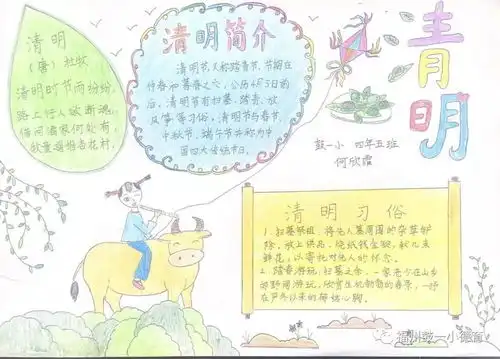 清明
(唐) 杜牧
清明时节雨纷纷,
路上行人欲断魂。
借问酒家何处有,
牧童遥指杏花村。
清明简介
清明节,又称踏青节,节期在
仲春和暮春之交,公历4月5日前
后,清明节有扫墓、踏青、放
风筝等习俗,清明节与春节、
中秋节、端午节并称为中
国四大传统节日。
清明
鼓一小 四年五班
何欣霏
清明习俗
1、扫墓祭祖 将先人墓周围的杂草铲
除,放上供品,烧纸钱金锭,献几束
鲜花,以寄托对先人的怀念。
2、踏春游玩,扫墓之余,一家老少在山乡
郊野间游玩,欣赏生机勃勃的春景,一抒
在严冬以来的郁结心胸。
福州鼓一小德育